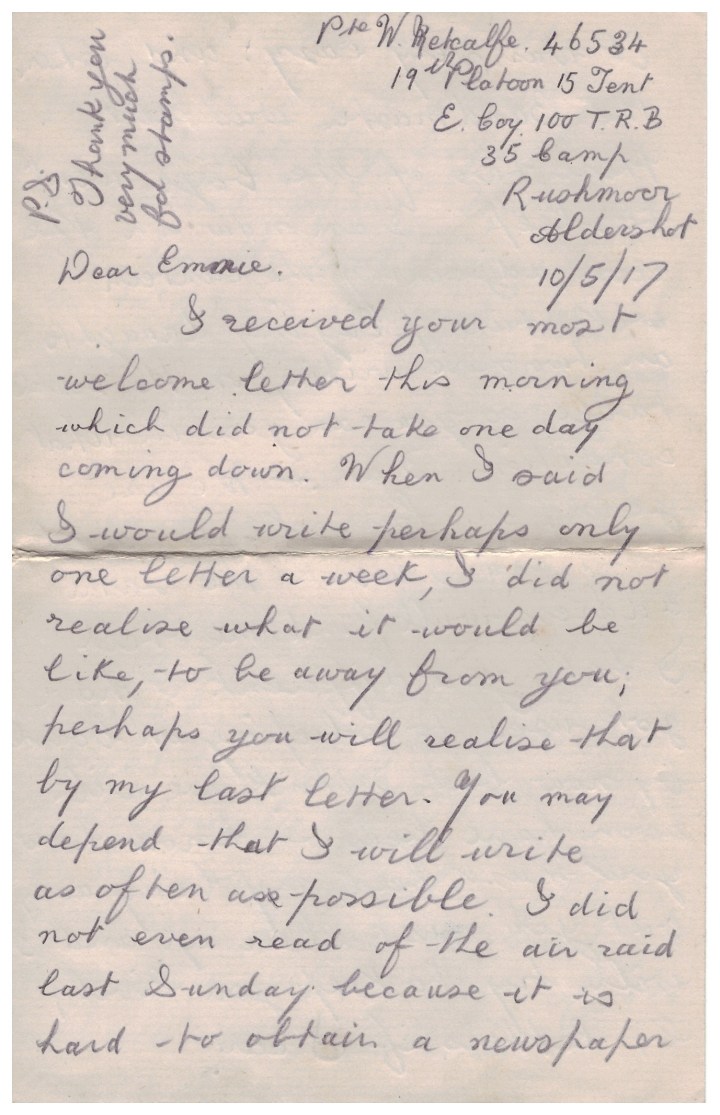 Pte W. Metcalfe. 46534
19th Platoon 15 Tent
E. Coy. 100 T.R.B
35 Camp
Rushmoor
Aldershot
10/5/17
P.S.
Thank you
very much
for stamps.
Dear Emmie.
I received your most
welcome letter this morning
which did not take one day
coming down. When I said
I would write perhaps only
one letter a week, I did not
realise what it would be
like, to be away from you;
perhaps you will realise that
by my last letter. You may
depend that I will write
as often as possible. I did
not even read of the air raid
last Sunday because it is
hard to obtain a newspaper